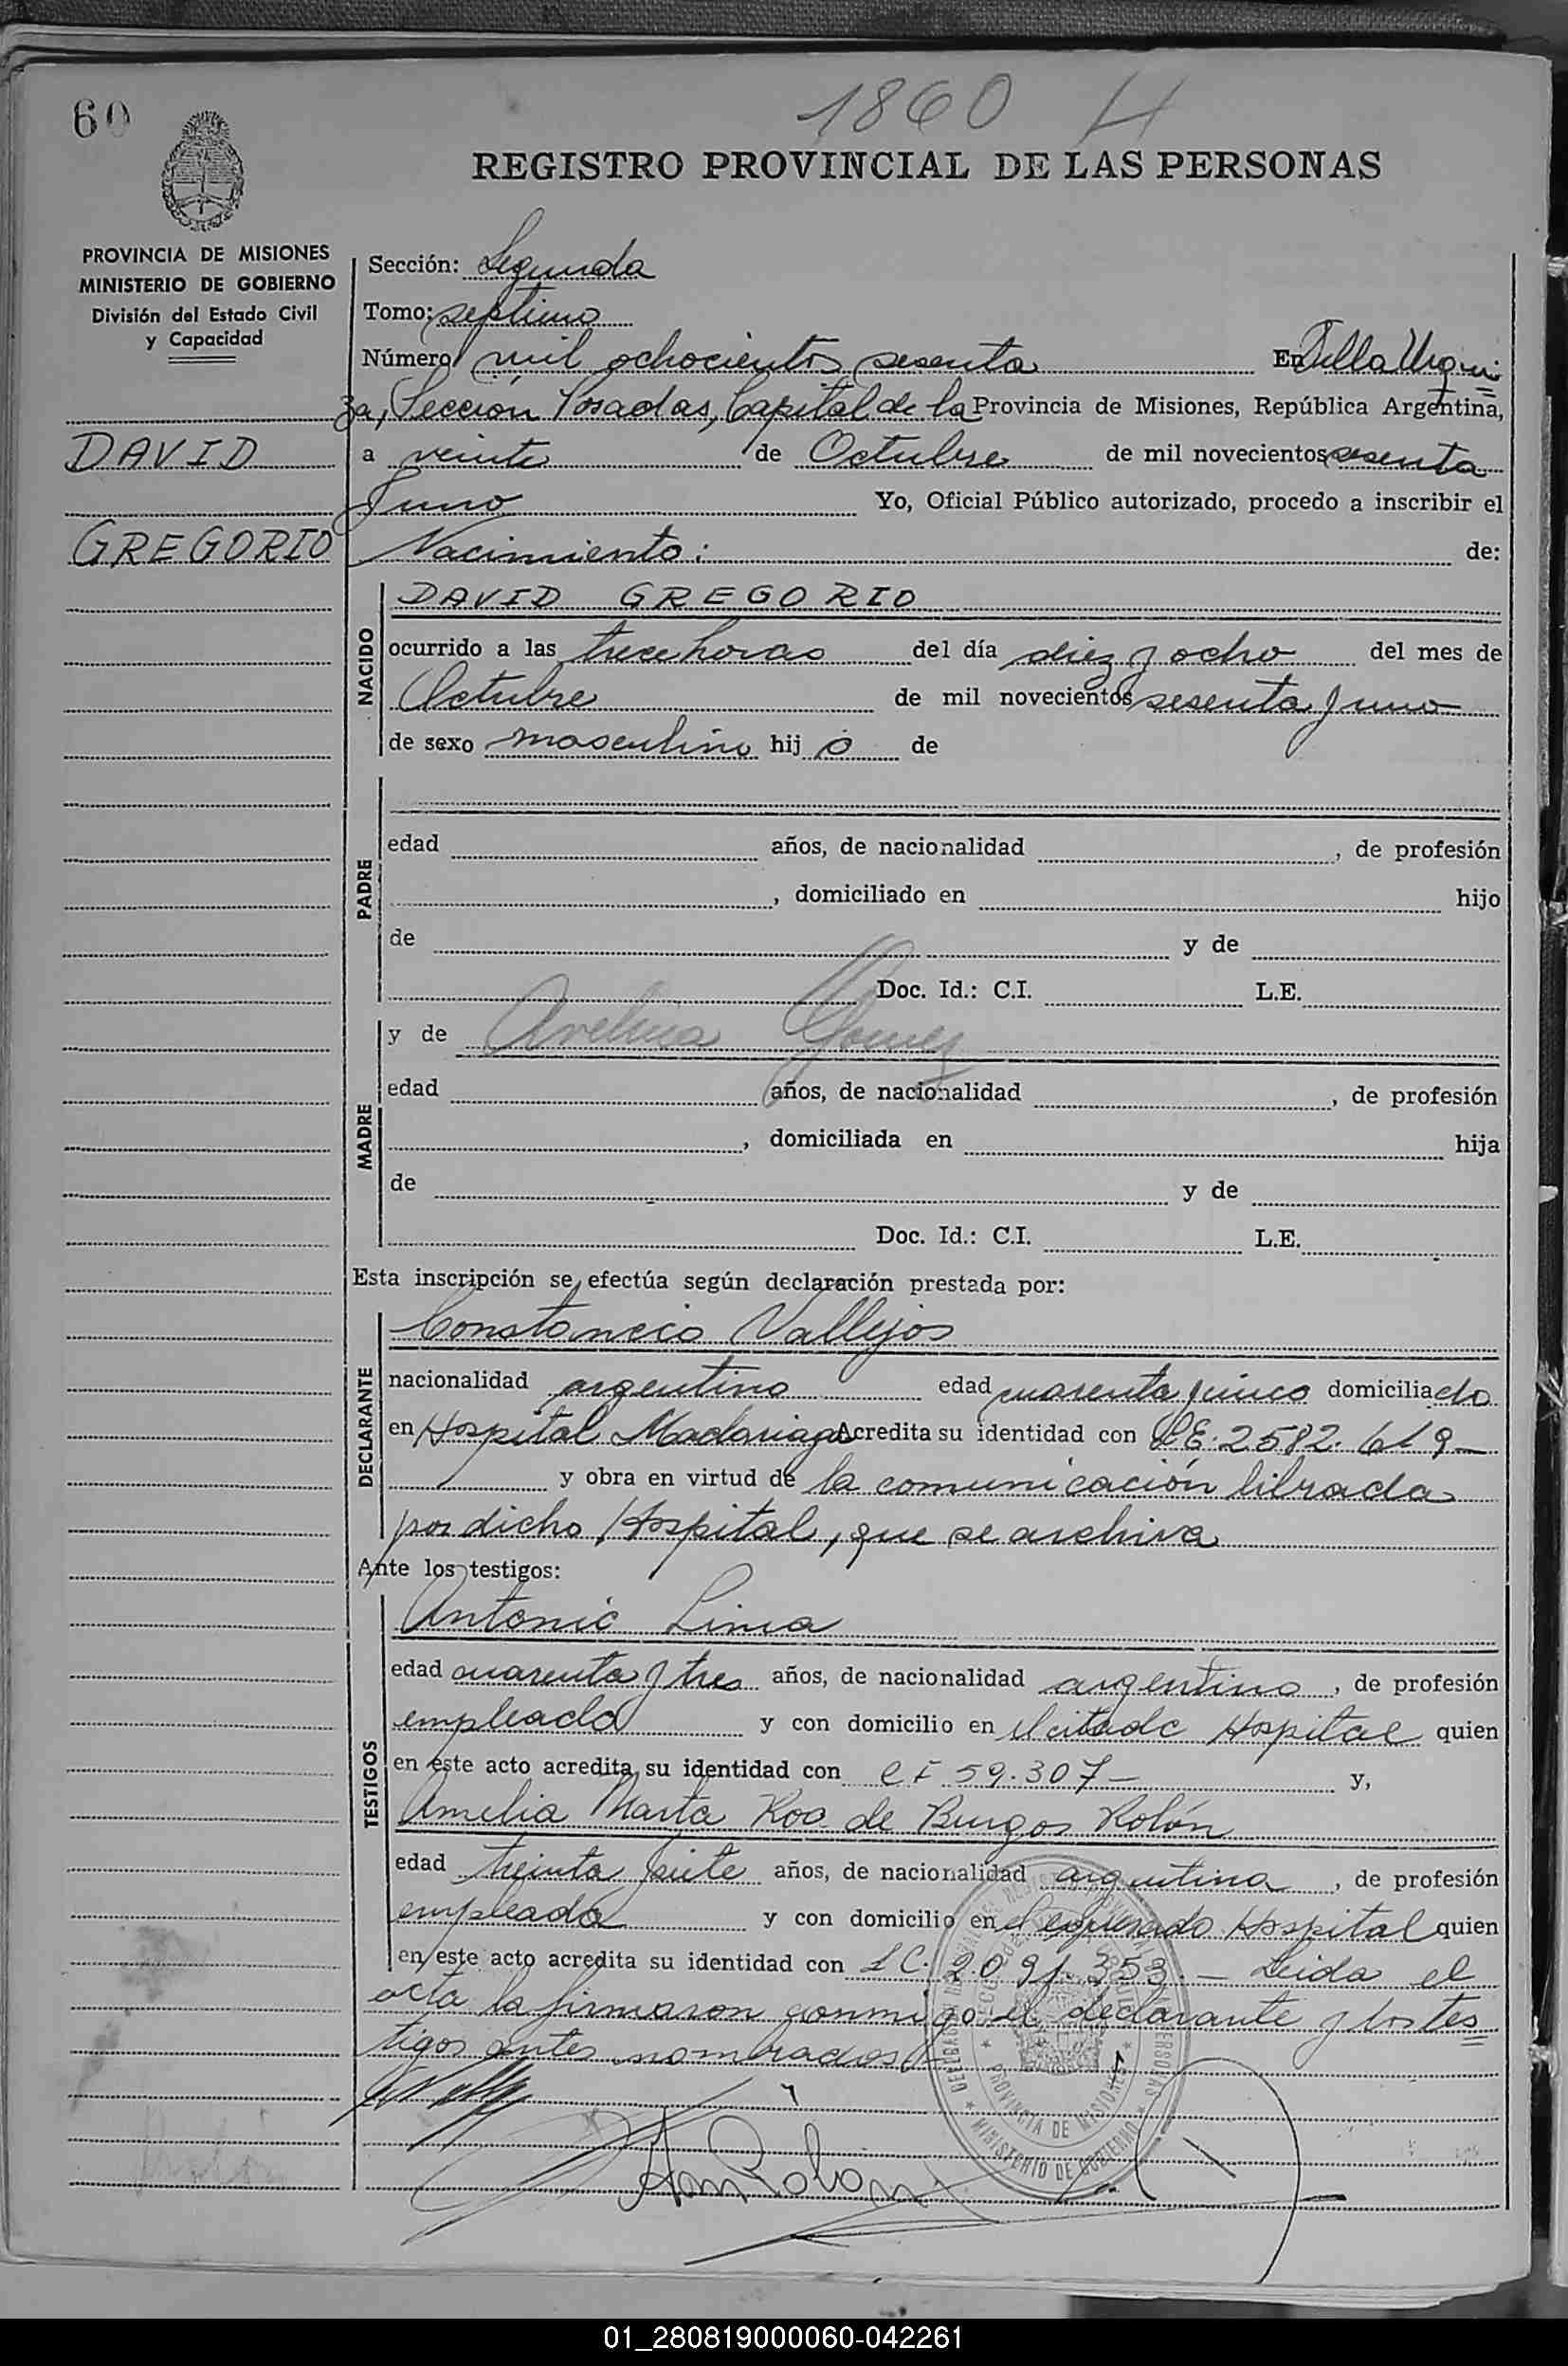 60
1860 H
REGISTRO PROVINCIAL DE LAS PERSONAS
PROVINCIA DE MISIONES
MINISTERIO DE GOBIERNO
División del Estado Civil
y Capacidad
DAVID
GREGORIO
Sección: Segunda
Tomo: septimo
Número mil ochocientos sesenta En Villa Urqui=
za, Sección Posadas, Capital de la Provincia de Misiones, República Argentina,
a veinte de Octubre de mil novecientos sesenta
y uno Yo, Oficial Público autorizado, procedo a inscribir el
Nacimiento: de:
NACIDO
DAVID GREGORIO
ocurrido a las trece horas del día diez y ocho del mes de
Octubre de mil novecientos sesenta y uno
de sexo masculino hijo de
PADRE
edad años, de nacionalidad , de profesión
, domiciliado en hijo
de y de
Doc. Id.: C.I. L.E.
MADRE
y de Avelina Gomez
edad años, de nacionalidad , de profesión
, domiciliada en hija
de y de
Doc. Id.: C.I. L.E.
Esta inscripción se efectúa según declaración prestada por:
DECLARANTE
Constancio Vallejos
nacionalidad argentino edad cuarenta y cinco domiciliado
en Hospital Madariaga Acredita su identidad con LE. 2582.619-
y obra en virtud de la comunicación librada
por dicho Hospital, que se archiva
Ante los testigos:
TESTIGOS
Antonio Lima
edad cuarenta y tres años, de nacionalidad argentino, de profesión
empleado y con domicilio en el citado Hospital quien
en este acto acredita su identidad con CI 59.307- y,
Amelia Marta Roa de Burgos Rolón
edad treinta y siete años, de nacionalidad argentina, de profesión
empleada y con domicilio en el expresado Hospital quien
en este acto acredita su identidad con LC. 2.091.353.- Leida el
acta la firmaron conmigo el declarante y los tes=
tigos antes nombrados
PROVINCIA DE MISIONES
MINISTERIO DE GOBIERNO
Rolón
01_280819000060-042261